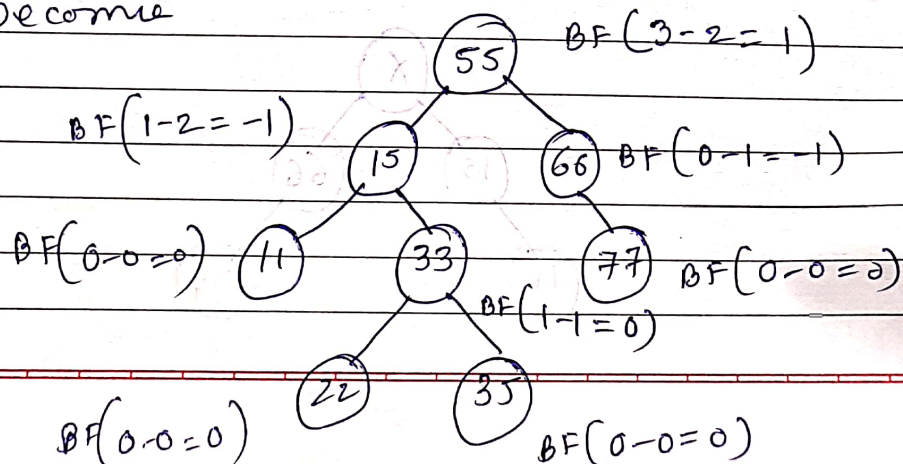 Become
55 BF(3-2=1)
BF(1-2=-1) 15 66 BF(0-1=-1)
BF(0-0=0) 11 33 77 BF(0-0=0)
BF(1-1=0)
22 35
BF(0-0=0) BF(0-0=0)